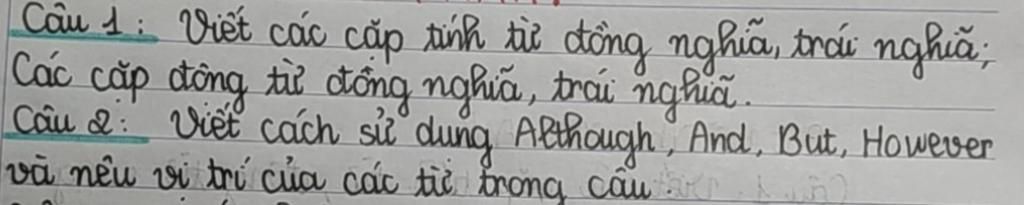 Câu 1: Viết các cặp tính từ đồng nghĩa, trái nghĩa;
Các cặp động từ đồng nghĩa, trái nghĩa.
Câu 2: Viết cách sử dụng Although, And, But, However
và nêu vị trí của các từ trong câu.